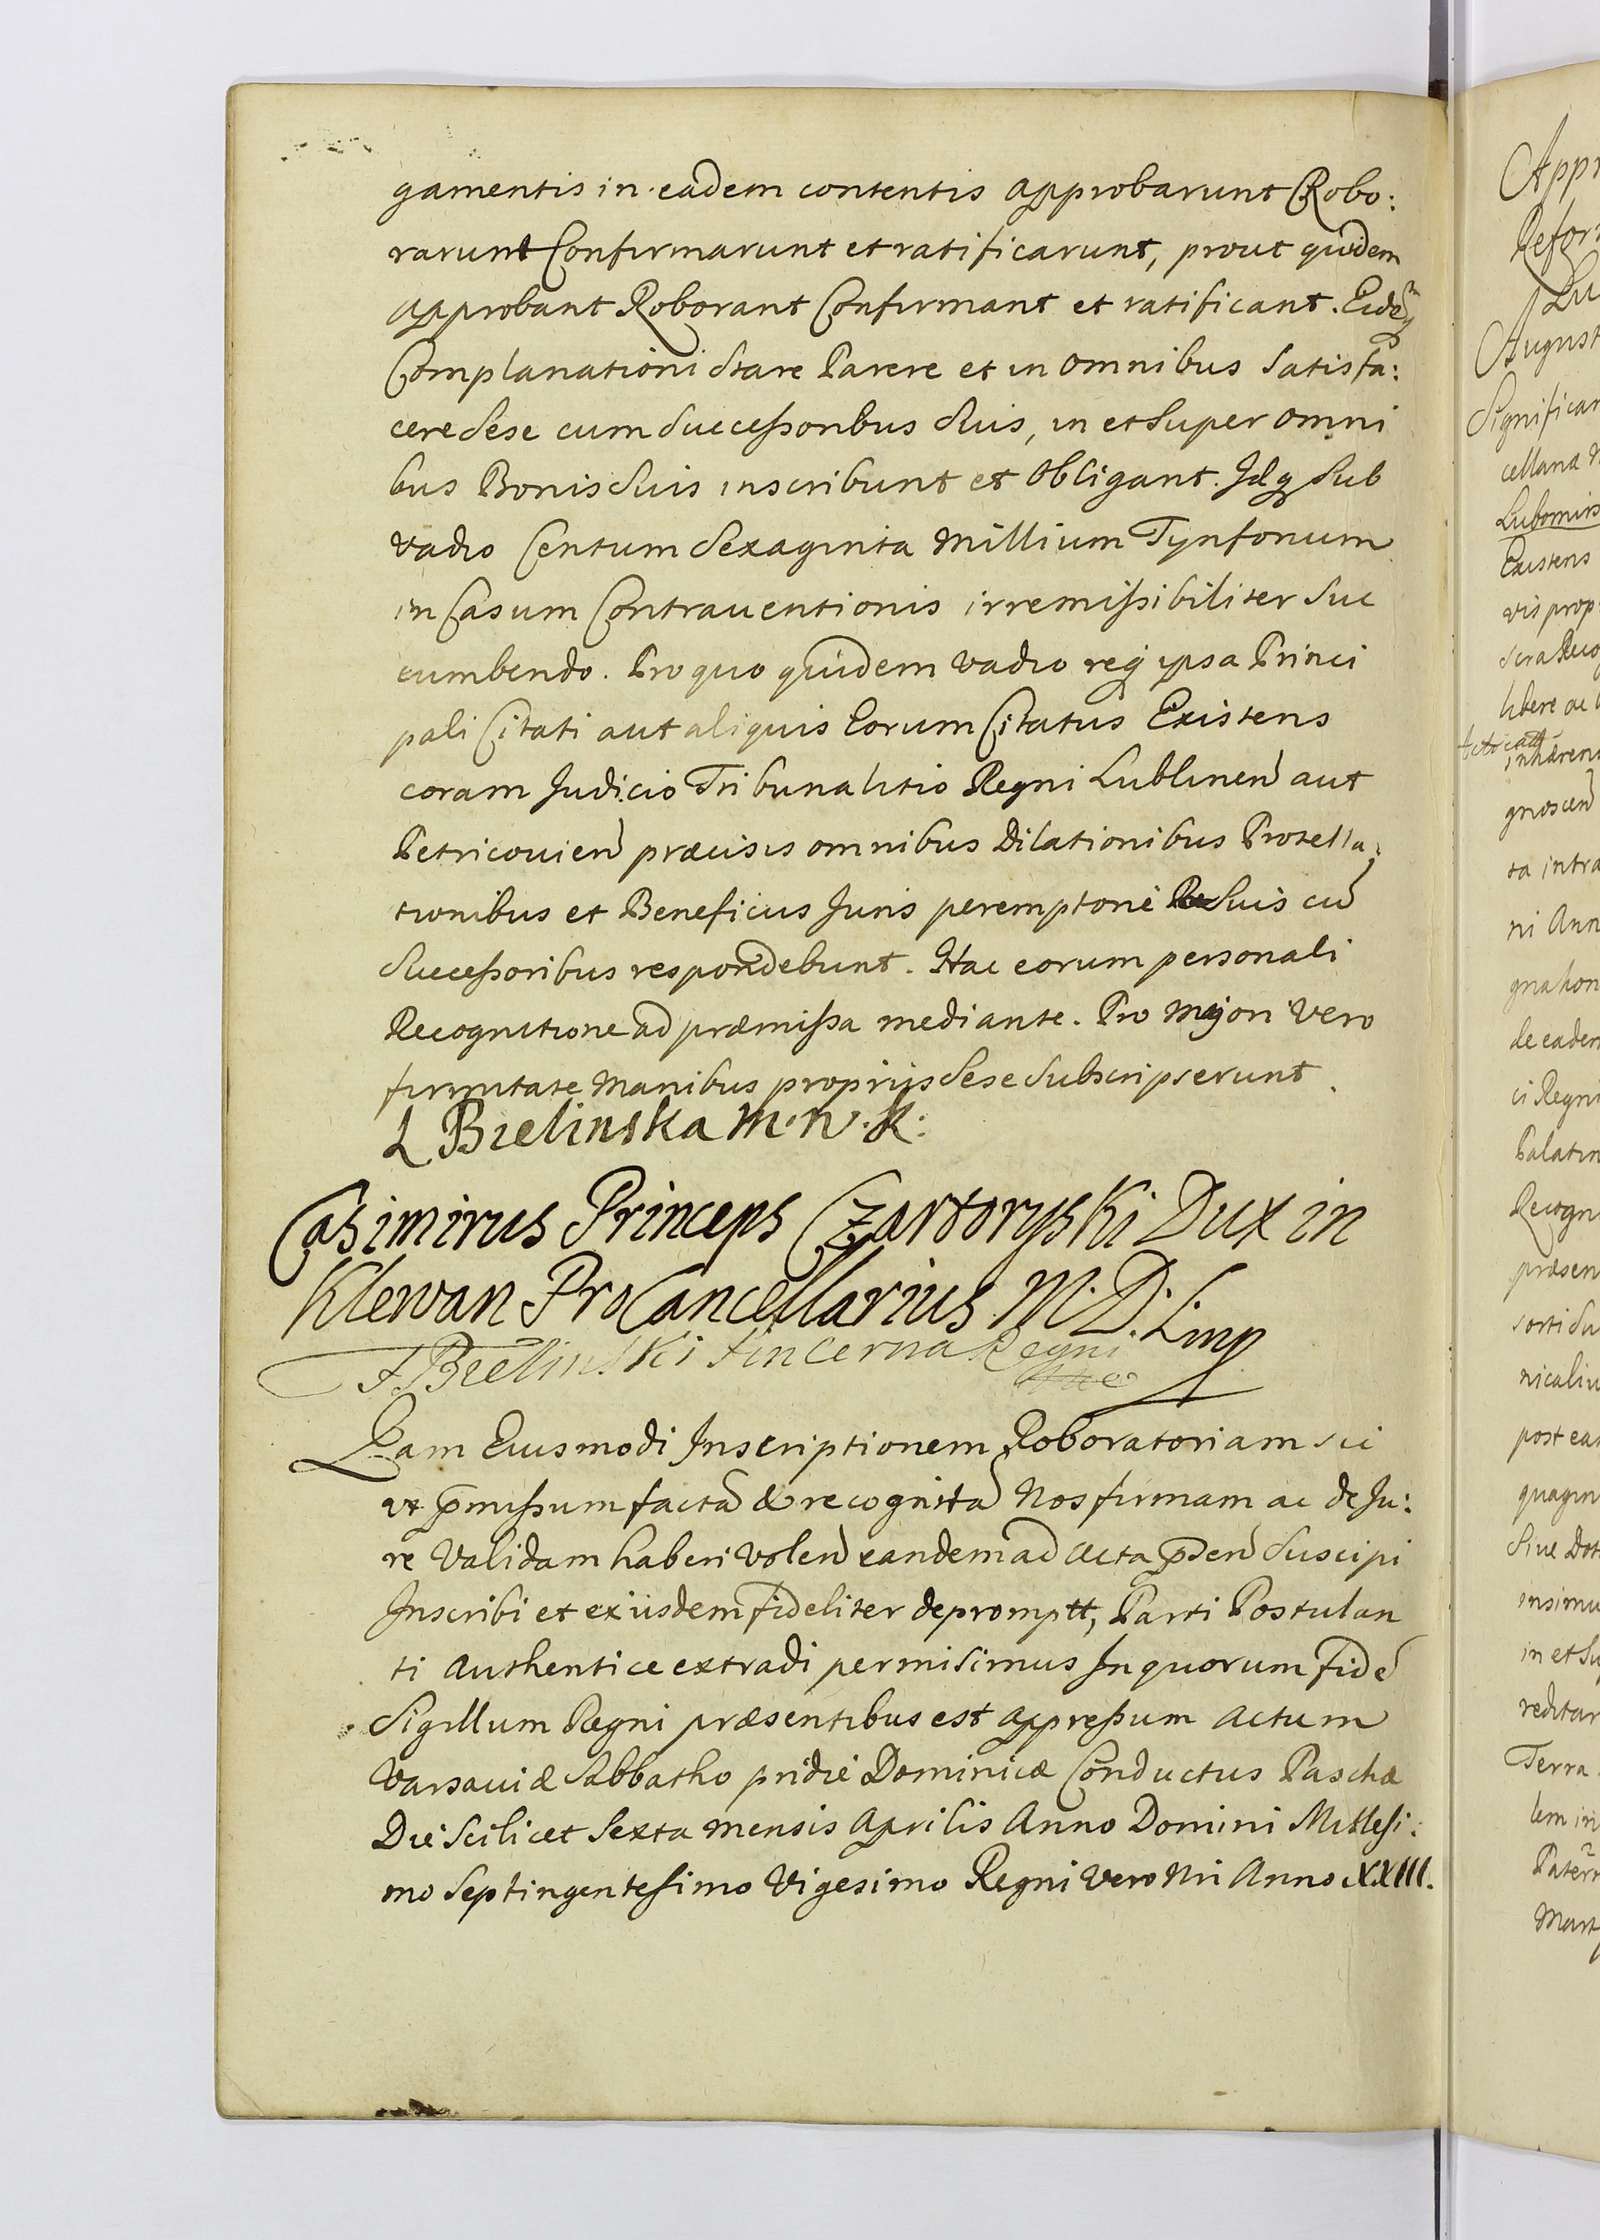 gamentis in eadem contentis approbarunt Robo:
rarunt Confirmarunt et ratificarunt, prout quidem
approbant Roborant Confirmant et ratificant. Eidemq
Complanationi Stare Parere et in omnibus Satisfa:
cere Sese cum Successoribus Suis, in et Super omni
bus Bonis Suis inscribunt et Obligant. Idq Sub
vadio Centum Sexaginta Millium Tynfonum
in Casum Contrauentionis irremissibiliter Suc
cumbendo. Pro quo quidem vadio req ipsa Princi
pali Citati aut aliquis Eorum Citatus Existens
coram Judicio Tribunalitio Regni Lublinen aut
Petricouien præcisis omnibus Dilationibus Protella:
tionibus et Beneficiis Juris peremptorie Suis cu
Successoribus respondebunt. Hac eorum personali
Recognitione ad præmissa mediante. Pro Majori vero
firmitate Manibus proprijs Sese Subscripserunt.
L Bielinska m. n. K:
Casimirus Princeps Czartoryski Dux in
Klewan ProCancellarius M. D. L. mp
F Bielinski Pincerna Regni
Eam Eiusmodi Inscriptionem Roboratoriam sic
ut pmissum facta & recognita Nos firmam ac de Ju:
re Validam haberi volen eandem ad Acta psen Suscipi
Inscribi et ex iisdem fideliter depromptt, Parti Postulan
ti Authentice extradi permisimus In quorum fide
Sigillum Regni præsentibus est appressum Actum
Varsaviæ Sabbatho pridie Dominicæ Conductus Paschæ
Die Scilicet Sexta mensis Aprilis Anno Domini Millesi:
mo Septingentesimo Vigesimo Regni vero Nri Anno XXIII.
Appr
Refor
Lu
August
Significam
cellanæ N
Lubomirs
Existens
vis prop
Libere ac
inhærens
gnoscen
ta intra
ni Ann
de eadem
ci Regni
Palatin
Recogn
præsen
sorti Su
nicaliu
post ea
quagin
Siue Dot
insimu
in et Su
reditar
Terra
lem in
Patern
Mart